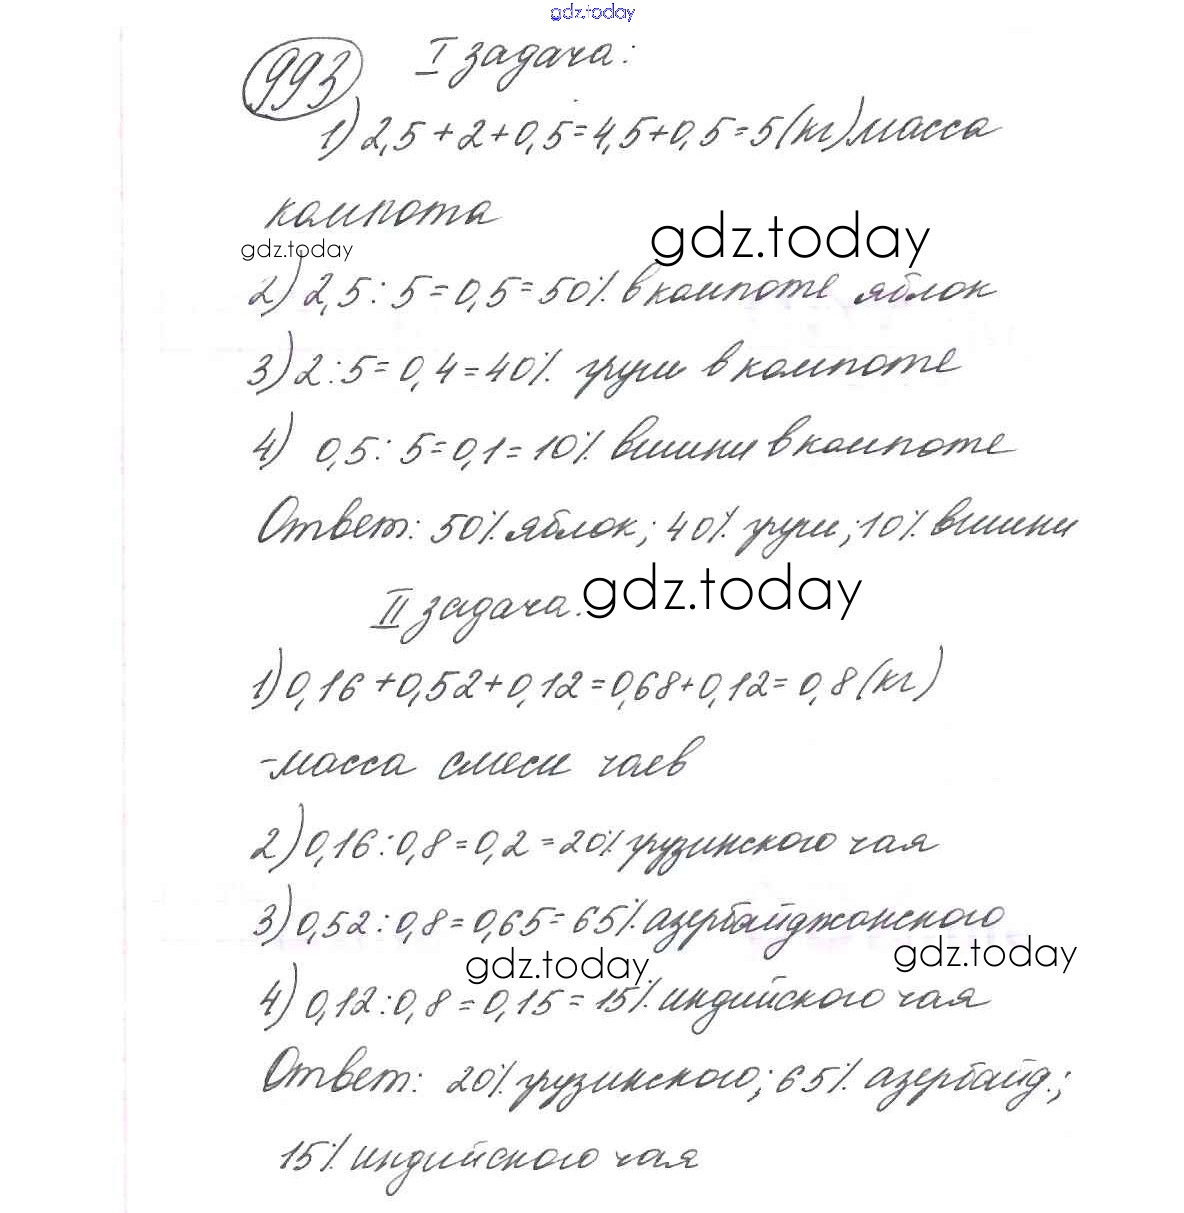 gdz.today
993 I задача:
1) 2,5+2+0,5=4,5+0,5=5(кг) масса
компота
gdz.today
gdz.today
2) 2,5:5=0,5=50% в компоте яблок
3) 2:5=0,4=40% груш в компоте
4) 0,5:5=0,1=10% вишни в компоте
Ответ: 50% яблок; 40% груш; 10% вишни
II задача.
gdz.today
1) 0,16+0,52+0,12=0,68+0,12=0,8(кг)
-масса смеси чаев
2) 0,16:0,8=0,2=20% грузинского чая
3) 0,52:0,8=0,65=65% азербайджонского
gdz.today
gdz.today
4) 0,12:0,8=0,15=15% индийского чая
Ответ: 20% грузинского; 65% азербайд.;
15% индийского чая